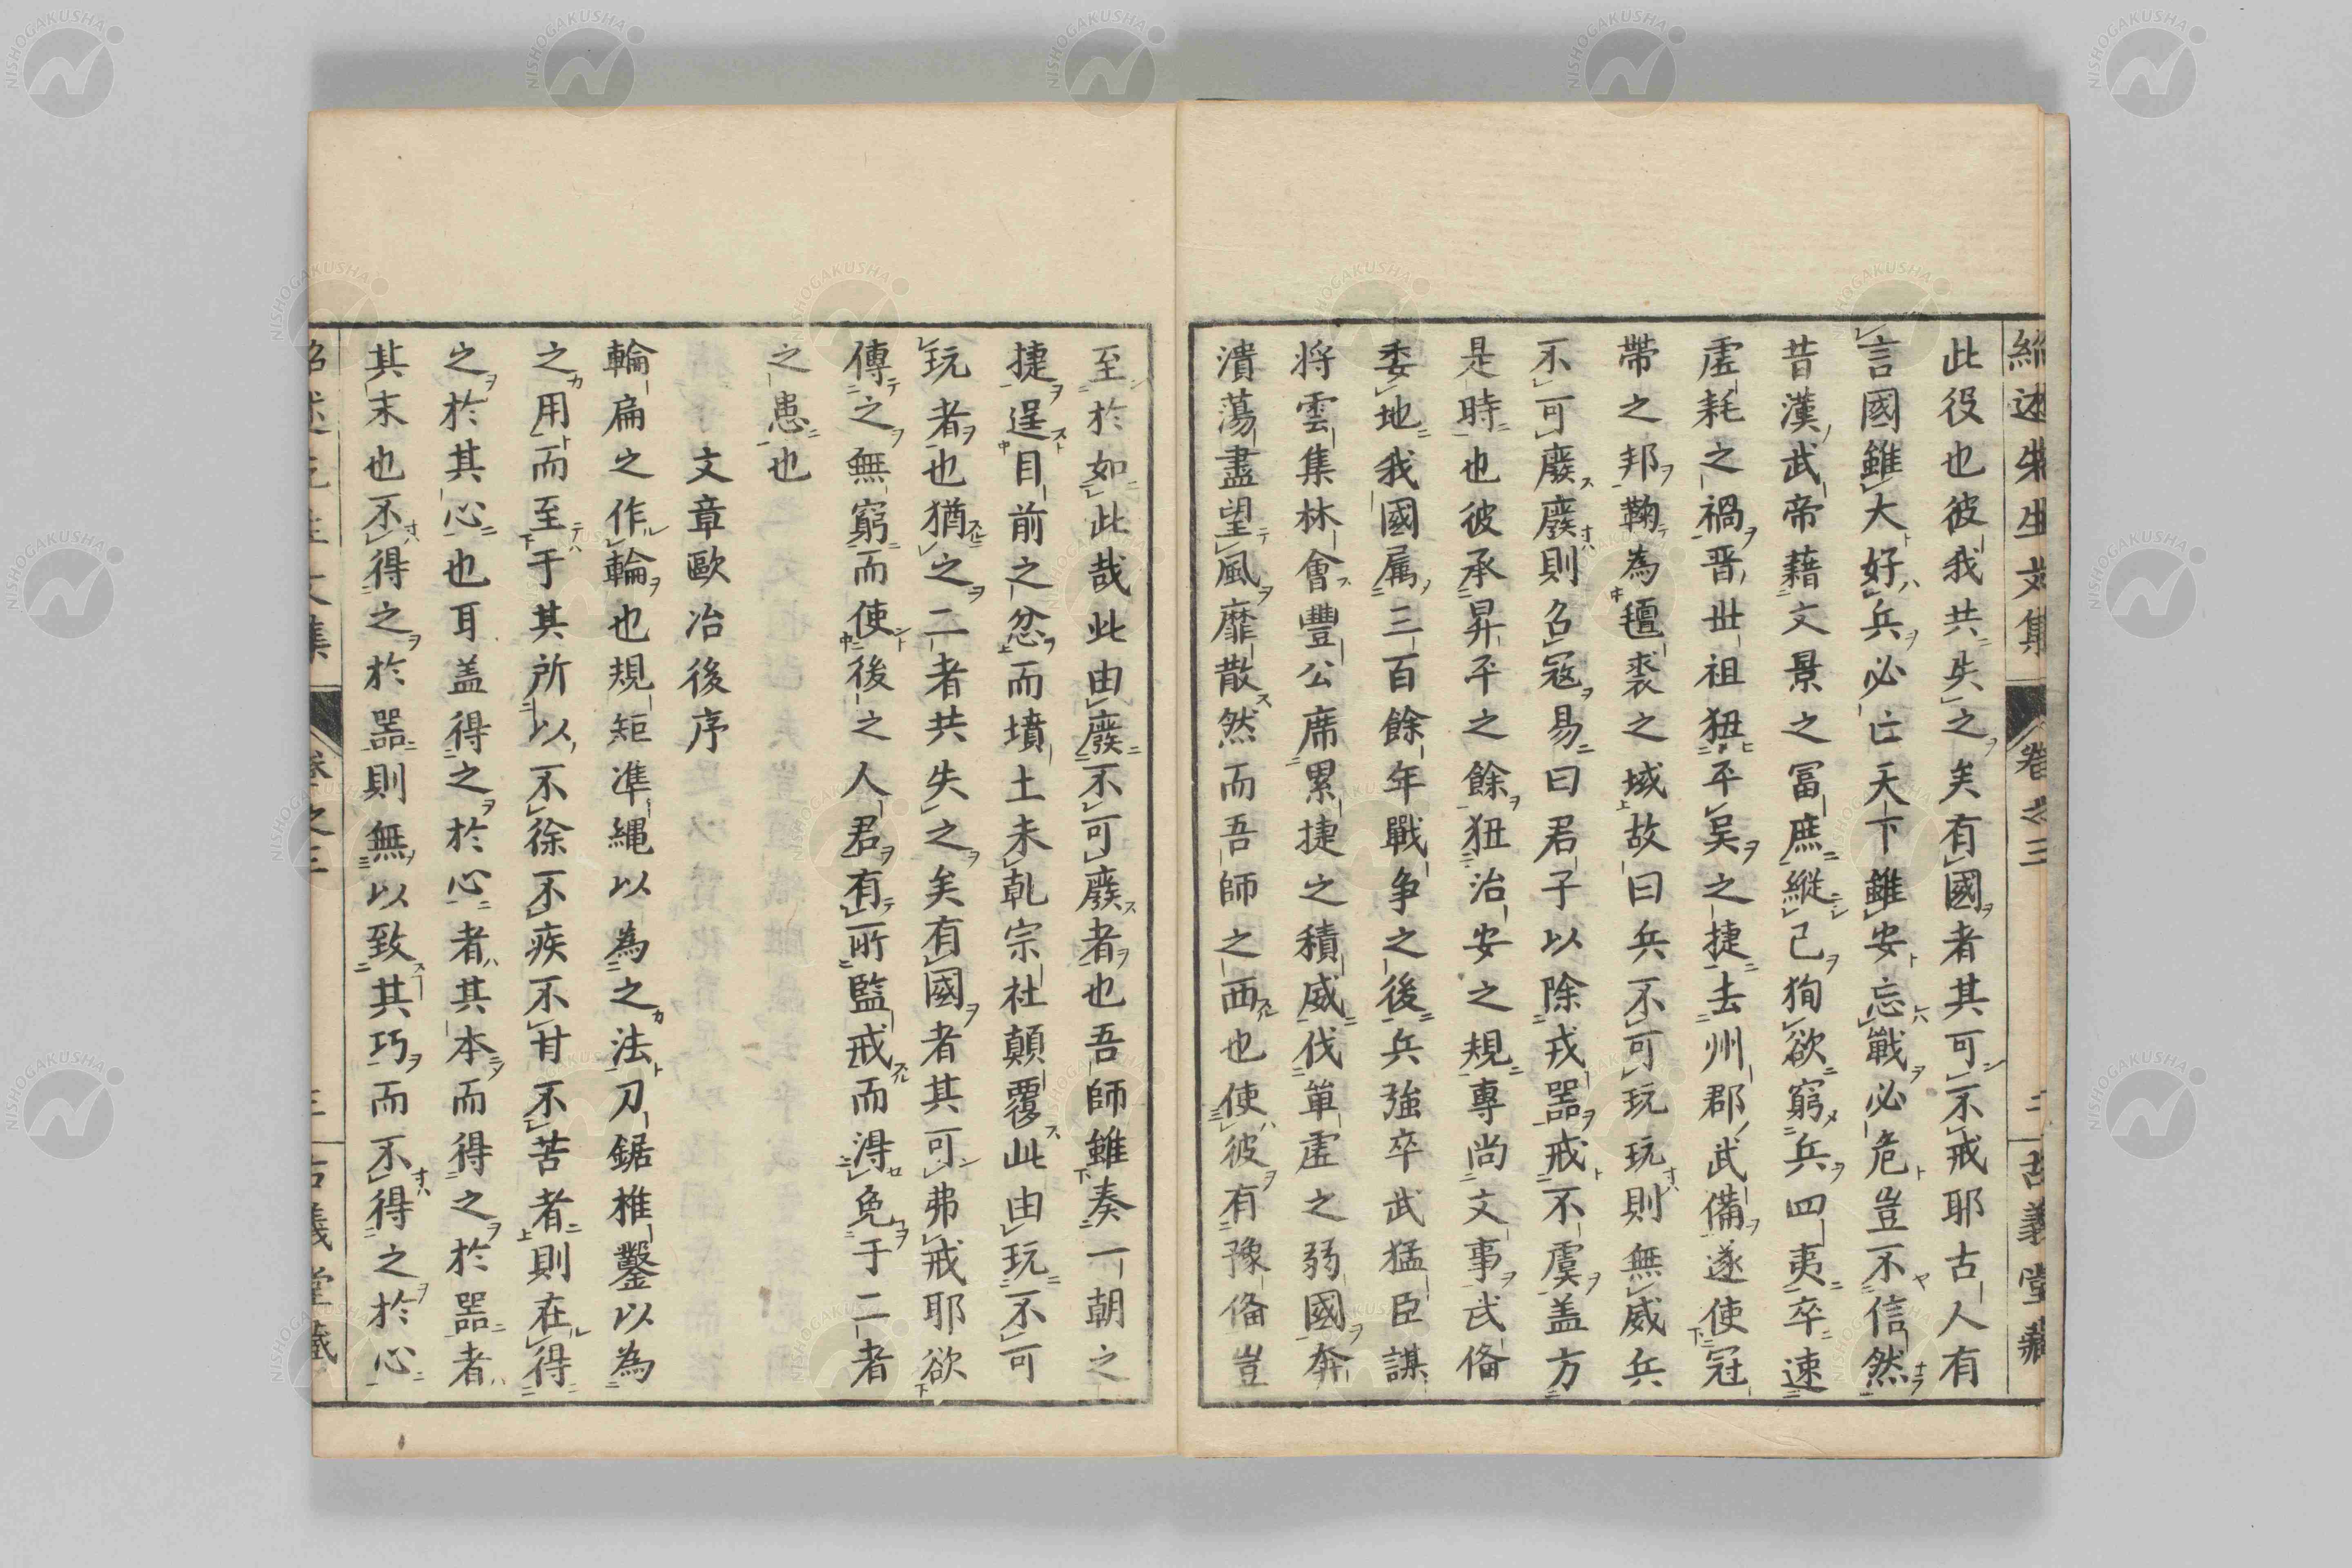 紹述先生文集 卷之三 二 古義堂藏
此役也彼我共失之矣有國者其可不戒耶古人有
言國雖大好兵必亡天下雖安忘戰必危豈不信然
昔漢武帝藉文景之冨庶縱己狥欲窮兵四夷卒速
虛耗之禍晋世祖狃平吴之捷去州郡武備遂使冠
帶之邦鞠為氊裘之域故曰兵不可玩玩則無威兵
不可廢廢則召冦易曰君子以除戎器戒不虞盖方
是時也彼承昇平之餘狃治安之規專尚文事武俻
委地我國属三百餘年戰争之後兵強卒武猛臣謀
将雲集林會豐公席累捷之積威伐單虛之弱國奔
潰蕩盡望風靡散然而吾師之西也使彼有豫俻豈
至於如此哉此由廢不可廢者也吾師雖奏一朝之
捷逞目前之忿而墳土未乹宗社顛覆此由玩不可
玩者也猶之二者共失之矣有國者其可弗戒耶欲
傳之無窮而使後之人君有所監戒而得免于二者
之患也
文章歐冶後序
輪扁之作輪也規矩凖縄以為之法刀鋸椎鑿以為
之用而至于其所以不徐不疾不甘不苦者則在得
之於其心也耳盖得之於心者其本而得之於器者
其末也不得之於器則無以致其巧而不得之於心
紹述先生文集 卷之三 三 古義堂藏
NISHOGAKUSHA